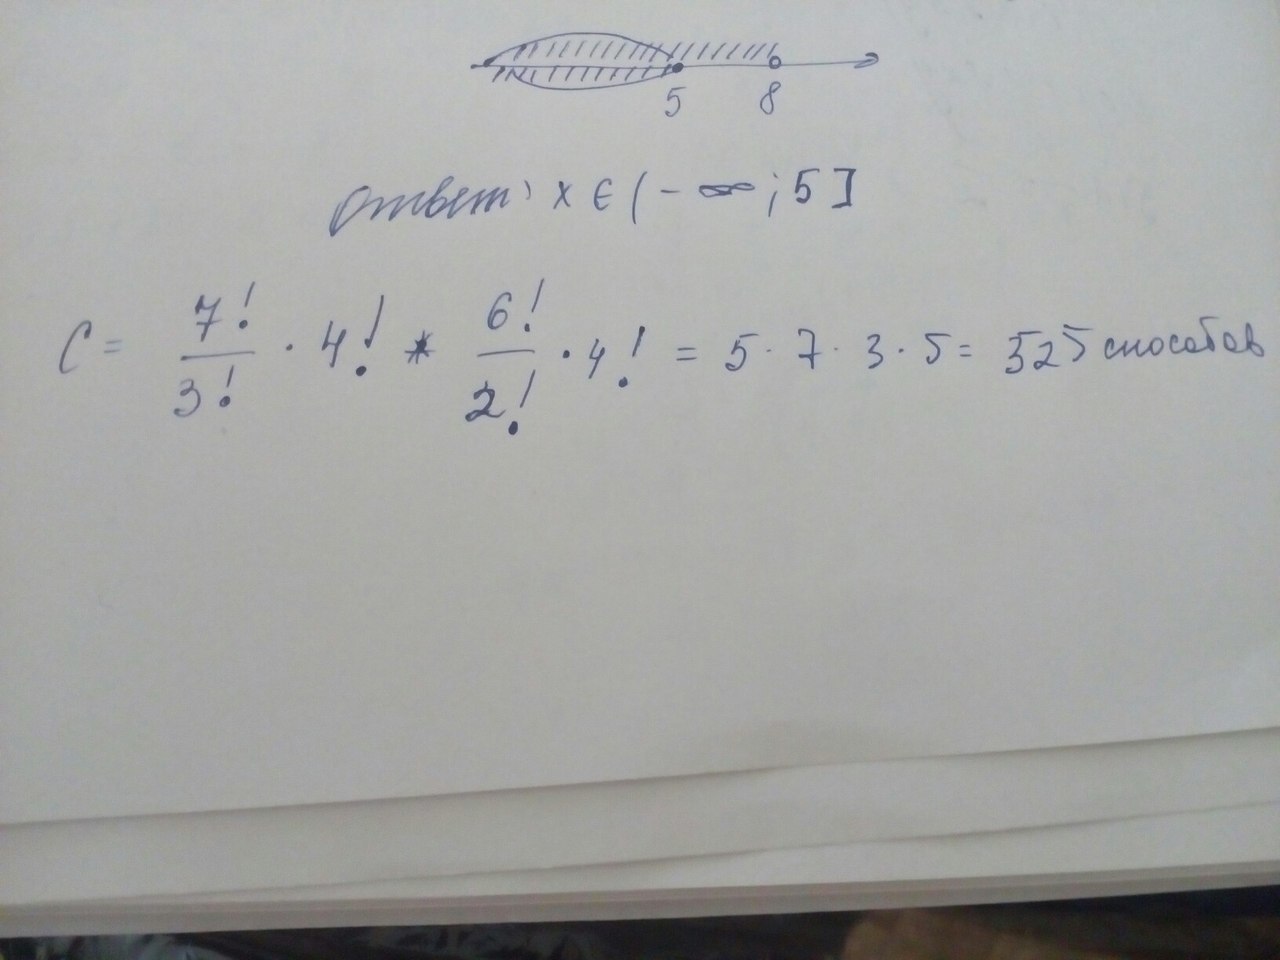 5 8
Ответ: x ∈ (-∞; 5]
C = 7!/3! · 4! * 6!/2! · 4! = 5 · 7 · 3 · 5 = 525 способов